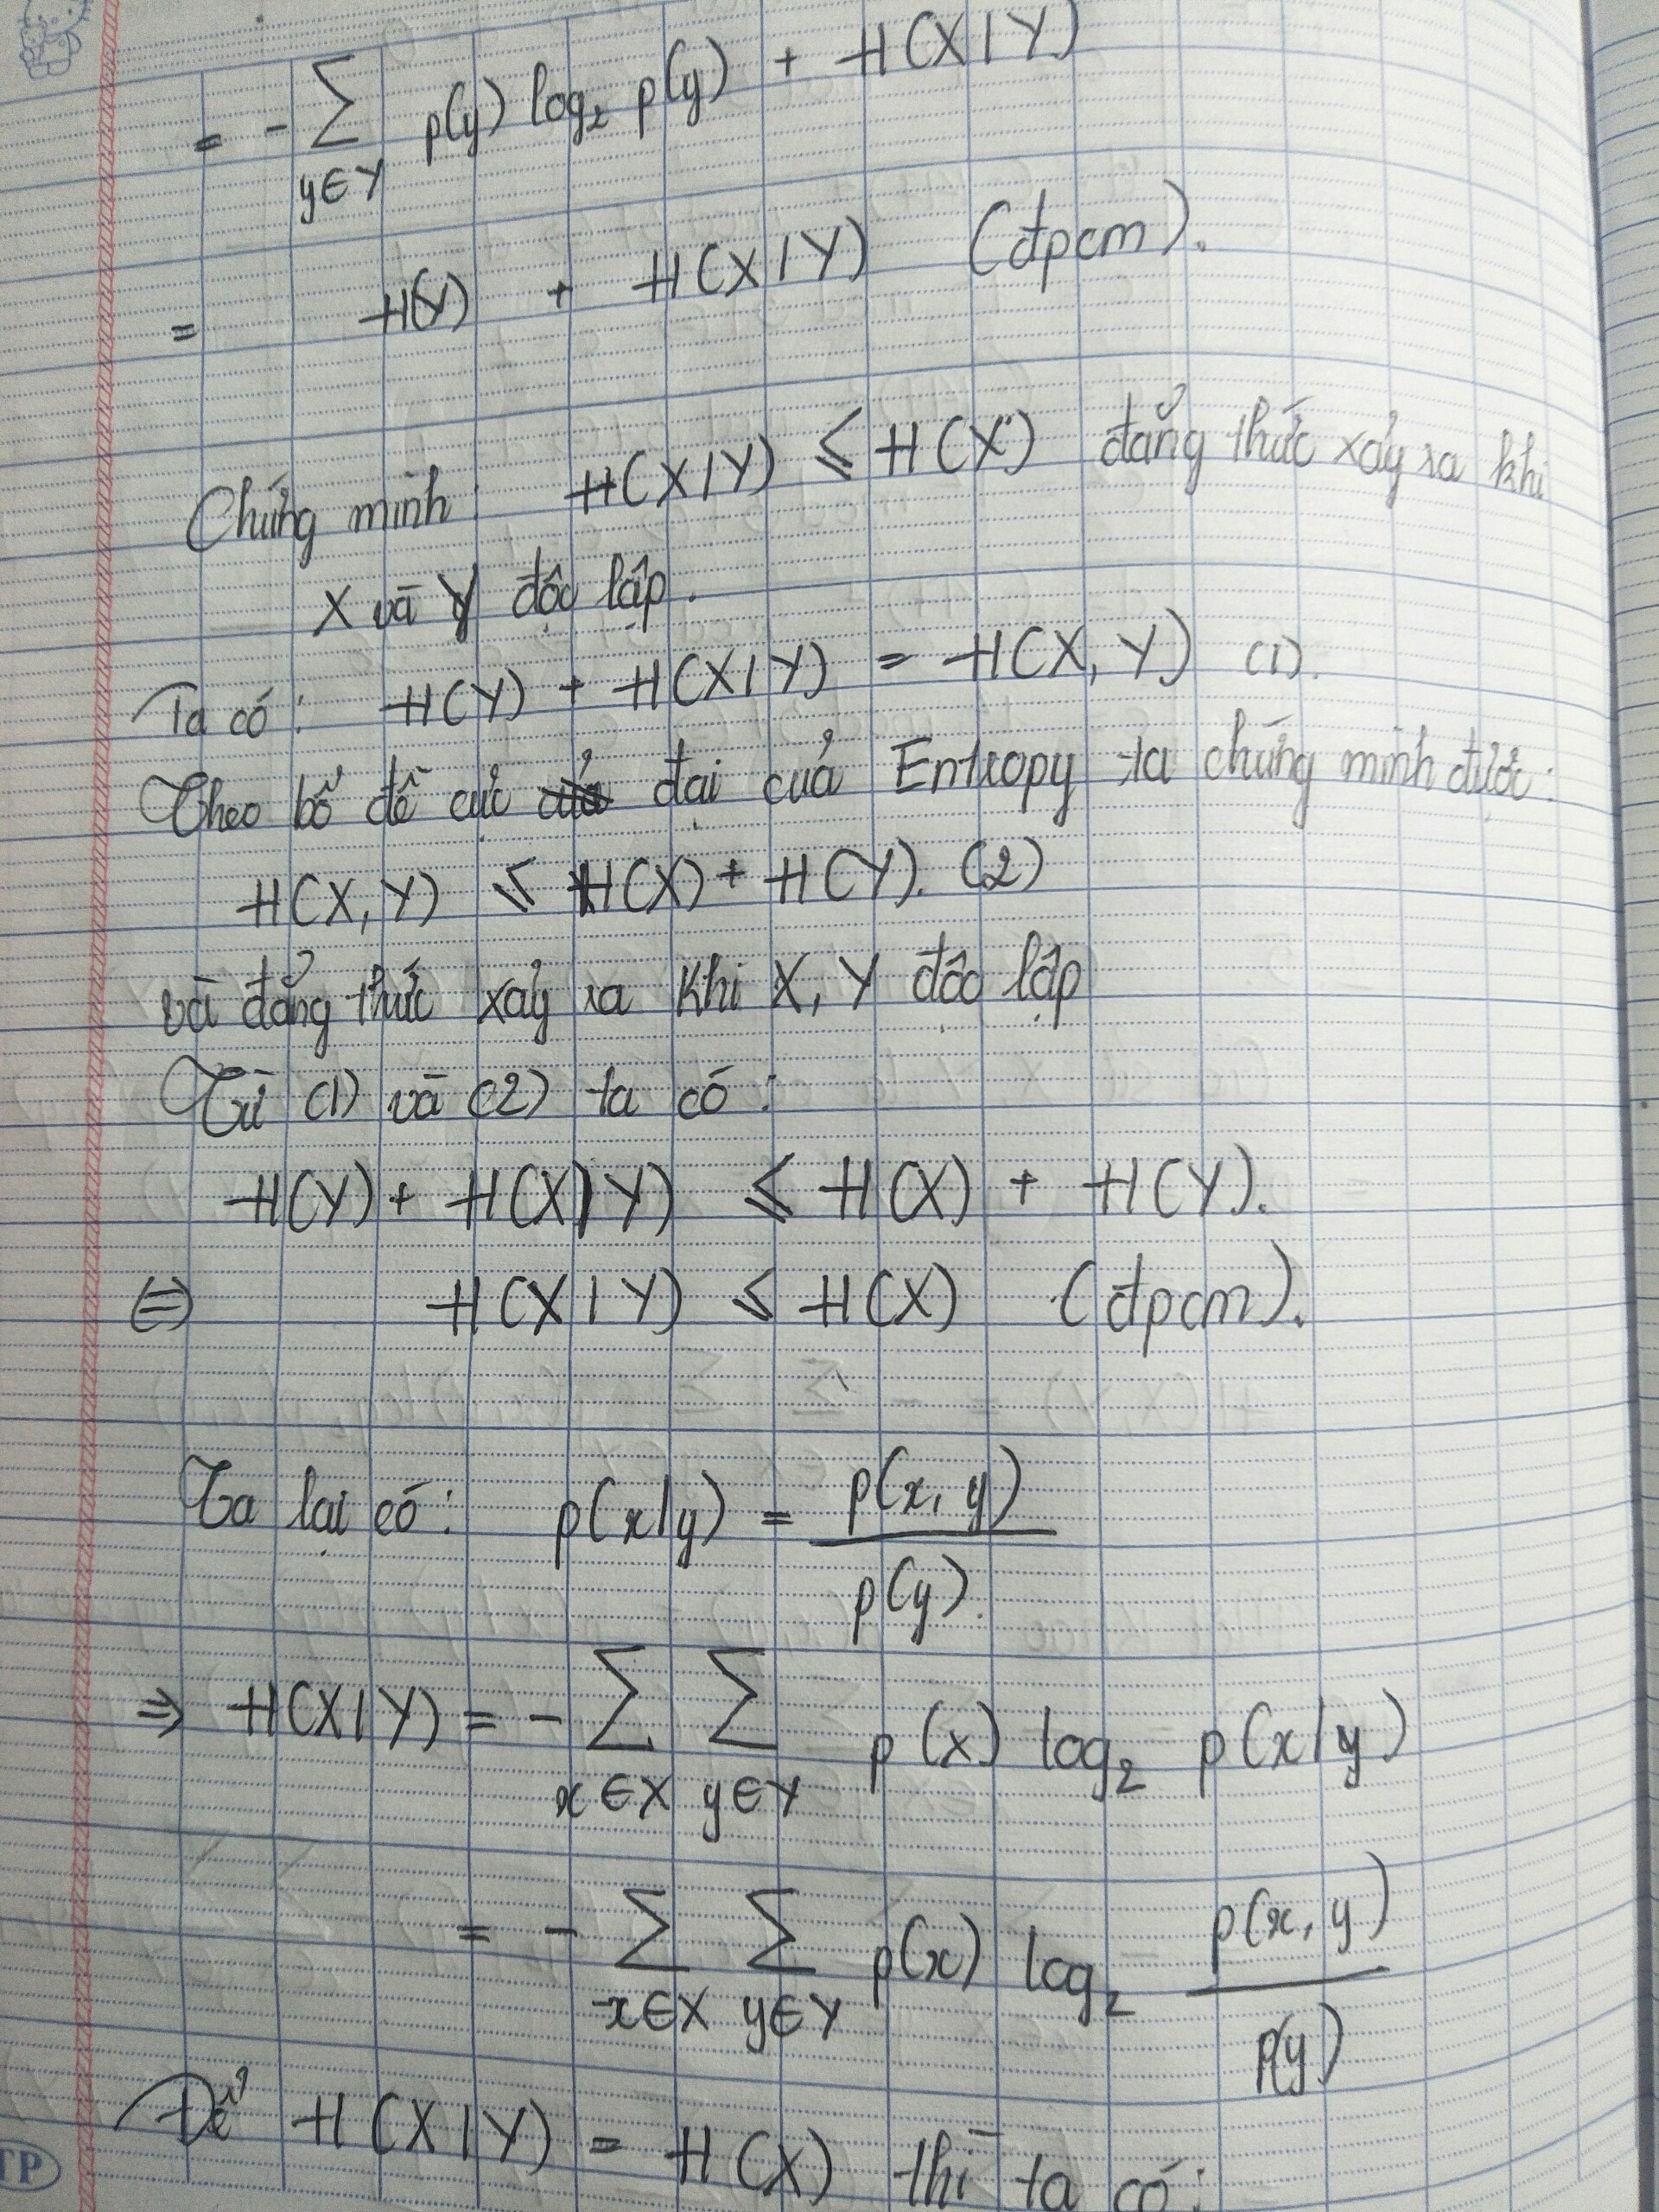 = - ∑ p(y) log₂ p(y) + H(X/Y)
y∈Y
= H(Y) + H(X/Y) (đpcm).
Chứng minh: H(X/Y) ⩽ H(X) đẳng thức xảy ra khi
X và Y độc lập.
Ta có: H(Y) + H(X/Y) = H(X, Y) (1).
Theo bổ đề cực đại của Entropy ta chứng minh được:
H(X, Y) ⩽ H(X) + H(Y). (2)
và đẳng thức xảy ra khi X, Y độc lập
Từ (1) và (2) ta có:
H(Y) + H(X/Y) ⩽ H(X) + H(Y).
⇔ H(X/Y) ⩽ H(X) (đpcm).
Ta lại có: p(x/y) = p(x, y)
p(y).
⇒ H(X/Y) = - ∑ ∑ p(x) log₂ p(x/y)
x∈X y∈Y
= - ∑ ∑ p(x) log₂ p(x, y)
x∈X y∈Y p(y)
Để H(X/Y) = H(X) thì ta có:
TP